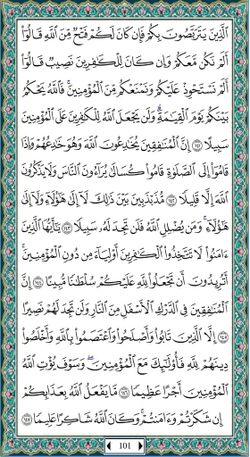 ٱلَّذِينَ يَتَرَبَّصُونَ بِكُمْ فَإِن كَانَ لَكُمْ فَتْحٌ مِّنَ ٱللَّهِ قَالُوٓا۟
أَلَمْ نَكُن مَّعَكُمْ وَإِن كَانَ لِلْكَٰفِرِينَ نَصِيبٌ قَالُوٓا۟
أَلَمْ نَسْتَحْوِذْ عَلَيْكُمْ وَنَمْنَعْكُم مِّنَ ٱلْمُؤْمِنِينَ ۚ فَٱللَّهُ يَحْكُمُ
بَيْنَكُمْ يَوْمَ ٱلْقِيَٰمَةِ ۗ وَلَن يَجْعَلَ ٱللَّهُ لِلْكَٰفِرِينَ عَلَى ٱلْمُؤْمِنِينَ
سَبِيلًا ١٤١ إِنَّ ٱلْمُنَٰفِقِينَ يُخَٰدِعُونَ ٱللَّهَ وَهُوَ خَٰدِعُهُمْ وَإِذَا
قَامُوٓا۟ إِلَى ٱلصَّلَوٰةِ قَامُوا۟ كُسَالَىٰ يُرَآءُونَ ٱلنَّاسَ وَلَا يَذْكُرُونَ
ٱللَّهَ إِلَّا قَلِيلًا ١٤٢ مُّذَبْذَبِينَ بَيْنَ ذَٰلِكَ لَآ إِلَىٰ هَٰٓؤُلَآءِ وَلَآ إِلَىٰ
هَٰٓؤُلَآءِ ۚ وَمَن يُضْلِلِ ٱللَّهُ فَلَن تَجِدَ لَهُۥ سَبِيلًا ١٤٣ يَٰٓأَيُّهَا ٱلَّذِينَ
ءَامَنُوا۟ لَا تَتَّخِذُوا۟ ٱلْكَٰفِرِينَ أَوْلِيَآءَ مِن دُونِ ٱلْمُؤْمِنِينَ ۚ
أَتُرِيدُونَ أَن تَجْعَلُوا۟ لِلَّهِ عَلَيْكُمْ سُلْطَٰنًا مُّبِينًا ١٤٤ إِنَّ
ٱلْمُنَٰفِقِينَ فِى ٱلدَّرْكِ ٱلْأَسْفَلِ مِنَ ٱلنَّارِ وَلَن تَجِدَ لَهُمْ نَصِيرًا
١٤٥ إِلَّا ٱلَّذِينَ تَابُوا۟ وَأَصْلَحُوا۟ وَٱعْتَصَمُوا۟ بِٱللَّهِ وَأَخْلَصُوا۟
دِينَهُمْ لِلَّهِ فَأُو۟لَٰٓئِكَ مَعَ ٱلْمُؤْمِنِينَ ۖ وَسَوْفَ يُؤْتِ ٱللَّهُ
ٱلْمُؤْمِنِينَ أَجْرًا عَظِيمًا ١٤٦ مَّا يَفْعَلُ ٱللَّهُ بِعَذَابِكُمْ
إِن شَكَرْتُمْ وَءَامَنتُمْ ۚ وَكَانَ ٱللَّهُ شَاكِرًا عَلِيمًا ١٤٧
101